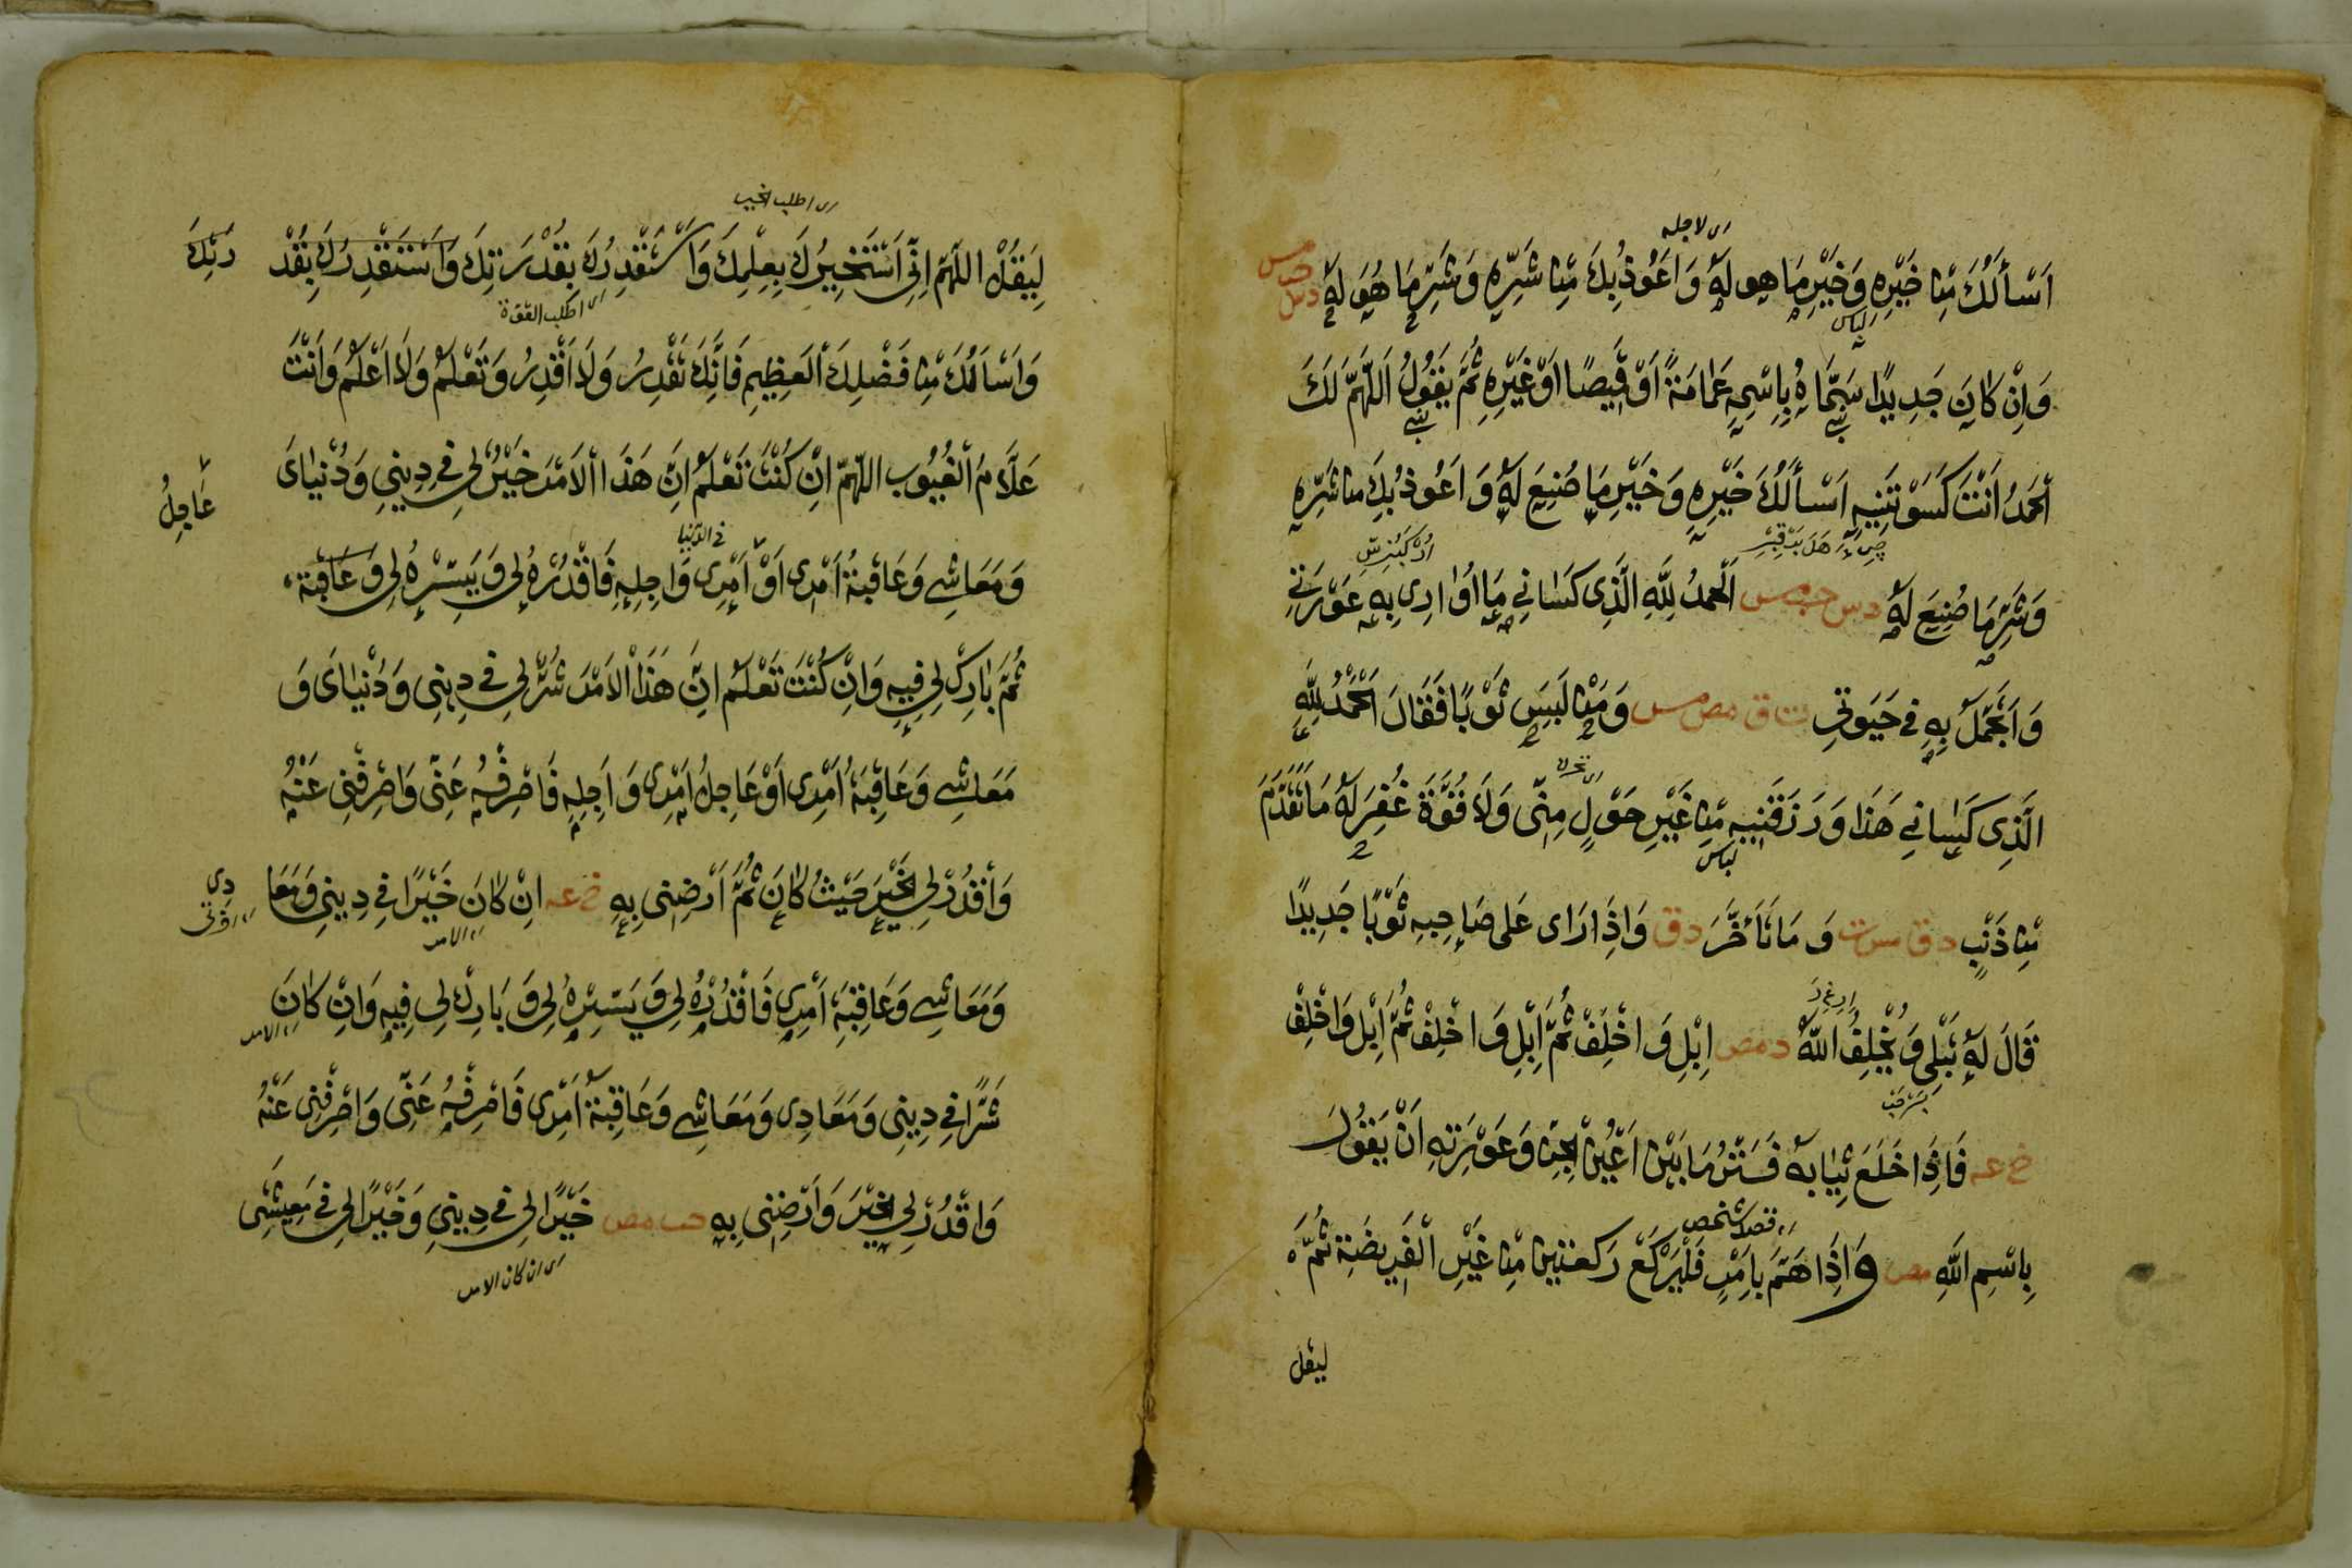 ای لاجله
اَسْأَلُكَ مِنْ خَيْرِهِ وَخَيْرِ مَا هو لَهُ وَاَعُوذُ بِكَ مِنْ شَرِّهِ وَشَرِّ مَا هُوَ لَهُ د س حب مس
لباس
وَاِنْ كَانَ جَدِيدًا سَمَّاهُ بِاسْمِهِ عَمَامَةً اَوْ قَمِيصًا اَوْ غَيْرِهِ ثُمَّ يَقُولُ اَللّٰهُمَّ لَكَ
اَلْحَمْدُ اَنْتَ كَسَوْتَنِيهِ اَسْأَلُكَ خَيْرِهِ وَخَيْرِ مَا صُنِعَ لَهُ وَاَعُوذُ بِكَ من شَرِّهِ
وَشَرِّ مَا صُنِعَ لَهُ د س حب مس اَلْحَمْدُ لِلّٰهِ الَّذِى كَسَانِي مَا اُوَارِى بِهِ عَوْرَتِي
وَاَتَجَمَّلُ بِهِ فِي حَيَوتِي ت ق مص مس وَمَنْ لَبِسَ ثَوْبًا فَقَالَ اَلْحَمْدُ لِلّٰهِ
الَّذِى كَسَانِي هَذَا وَرَزَقَنِيهِ مِنْ غَيْرِ حَوْلٍ مِنِّى وَلَا قُوَّةَ غُفِرَ لَهُ مَا تَقَدَّمَ
لباس
مِنْ ذَنْبِهِ د ق مس ت وَمَا تَأَخَّرَ د ق وَاِذَا رَاى عَلى صَاحِبِهِ ثَوْبًا جَدِيدًا
قَالَ لَهُ تُبْلِى وَيُخْلِفُ اللّٰهُ د مص اِبْلِ وَاخْلِفْ ثُمَّ اِبْلِ وَاخْلِفْ ثُمَّ اِبْلِ وَاخْلِفْ
خ عه فَاِذَا خَلَعَ ثِيَابهُ فَسَتْرُ مَا بَيْنَ اَعْيُنِ الْجِنِّ وَعَوْرَتِهِ اَنْ يَقُولَ
ای قصد شخص
بِاسْمِ اللّٰهِ مص وَاِذَا هَمَّ بِاَمْرٍ فَلْيَرْكَعْ رَكعتين مِنْ غَيْرِ الْفَرِيضَةِ ثُمَّ
ليقل
ای اطلب الخير
لِيَقُلْ اللّٰهُمَّ اِنِّى اَسْتَخِيرُكَ بِعِلْمِكَ وَاَسْتَقْدِرُكَ بِقُدْرَتِكَ وَاَسْتَقْدِرُكَ بِقُدْ رَتِكَ
ای اطلب القوة
وَاَسْاَلُكَ مِنْ فَضْلِكَ الْعَظِيمِ فَاِنَّكَ تَقْدِرُ وَلَا اَقْدِرُ وَتَعْلَمُ وَلَا اَعْلَمُ وَاَنْتَ
عَلَّامُ الْغُيُوب اللّٰهُمَّ اِنْ كُنْتَ تَعْلَمُ اَنَّ هَذَا الْاَمْرَ خَيْرٌ لِى فِي دِينِي وَدُنْيَاىَ
عَاجِلُ
فی الدنیا
وَمَعَاشِي وَعَاقِبَةُ اَمْرِى اَوْ اَمْرِى وَاجِلِهِ فَاقْدُرْهُ لِى وَيَسِّرْهُ لِى وَعَاقِبَة
ثُمَّ بَارِكْ لِى فِيهِ وَاِنْ كُنْتَ تَعْلَمُ اَنَّ هَذَا الْاَمْرَ شَرٌّ لِى فِي دِينِى وَدُنْيَاىَ وَ
مَعَاشِي وَعَاقِبَةُ اَمْرِى اَوْ عَاجِلُ اَمْرِى وَاَجِلِهِ فَاصْرِفْهُ عَنِّى وَاصْرِفْنِى عَنْهُ
وَاقْدُرْ لِى الْخَيْرَ حَيْثُ كَانَ ثُمَّ اَرْضِنِى بِهِ خ عه اِنْ كَانَ خَيْرًا فِي دِينِي وَمَعَا دِى
ای الامر
وَمَعَاشِي وَعَاقِبَةِ اَمْرِى فَاقْدُرْهُ لِى وَيَسِّرْهُ لِى وَبَارِكْ لِى فِيهِ وَاِنْ كَانَ
ای الامر
شَرًّا فِي دِينِى وَمَعَادِى وَمَعَاشِي وَعَاقِبَةُ اَمْرِى فَاصْرِفْهُ عَنِّى وَاصْرِفْنِى عَنْهُ
وَاقْدُرْ لِى الْخَيْرَ وَاَرْضِنِى بِهِ حب مص خَيْرًا لِى فِي دِينِي وَخَيْرًا لِى فِي مَعِيشَتِى
ای ان كان الامر